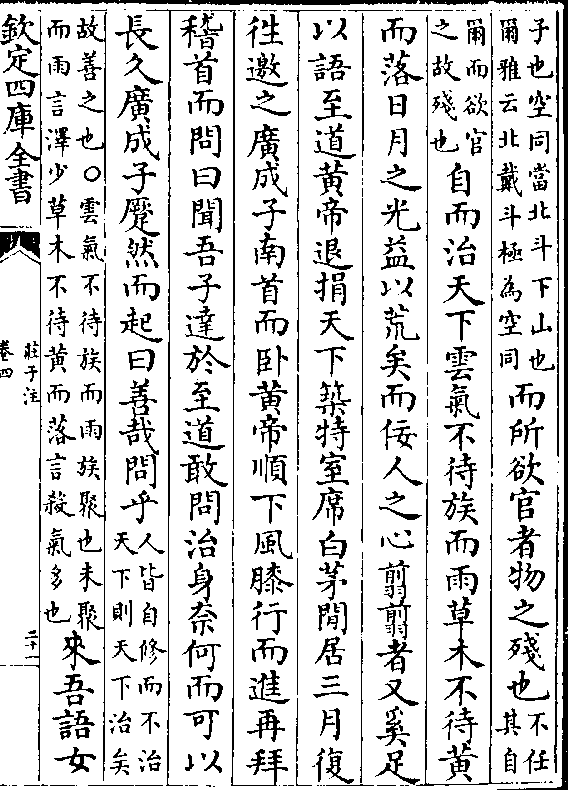 子也空同當北斗下山也
爾雅云北戴斗極為空同
而所欲官者物之殘也
不任其自
爾而欲官
之故殘也
自而治天下雲氣不待族而雨草木不待黄
而落日月之光益以荒矣而佞人之心翦翦者又奚足
以語至道黄帝退捐天下築特室席白茅閒居三月復
徃邀之廣成子南首而卧黄帝順下風膝行而進再拜
稽首而問曰聞吾子達於至道敢問治身奈何而可以
長久廣成子蹷然而起曰善哉問乎
人皆自修而不治
天下則天下治矣
故善之也○雲氣不待族而雨族聚也未聚
而雨言澤少草木不待黄而落言殺氣多也
來吾語女
欽定四庫全書
莊子注
卷四
二十一